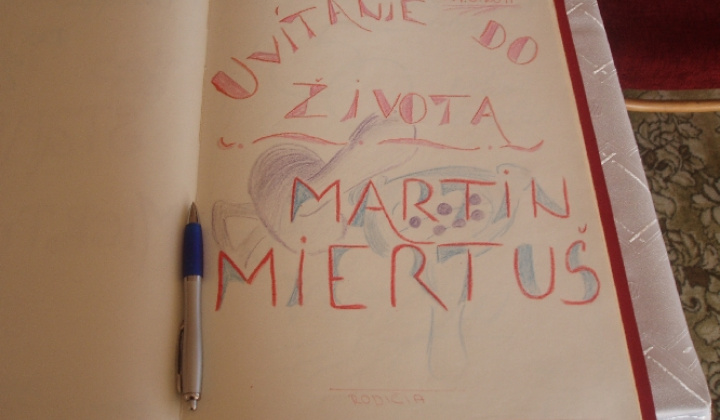 UVÍTANIE DO
ŽIVOTA
MARTIN
MIERTUŠ
RODIČIA